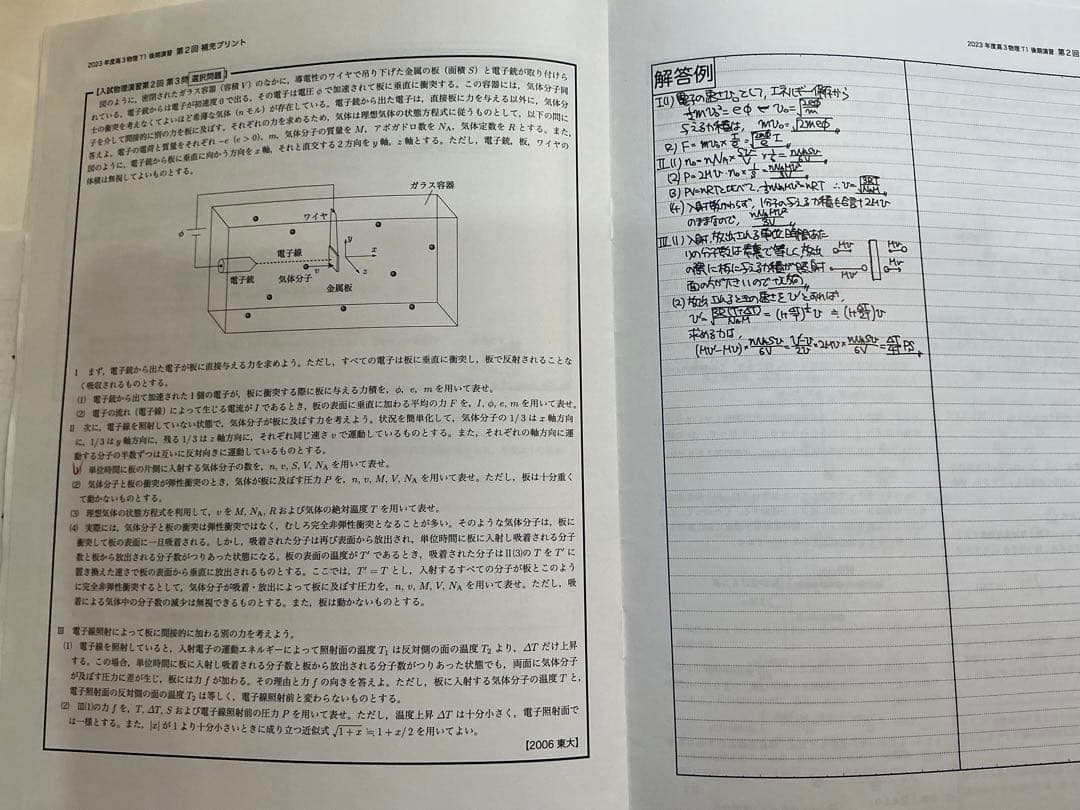 2023 年度高3物理 T1 後期演習 第2回 補充プリント
【入試物理演習第2回 第3問 選択問題】
図のように，密閉されたガラス容器（容積 V）のなかに，導電性のワイヤで吊り下げた金属の板（面積 S）と電子銃が取り付けら
れている。電子銃からは電子が初速度 0 で出る。その電子は電圧 φ で加速されて板に垂直に衝突する。この容器には，気体分子同
士の衝突を考えなくてよいほど希薄な気体（n モル）が存在している。電子銃から出た電子は，直接板に力を与える以外に，気体分
子を介して間接的に別の力を板に及ぼす。それぞれの力を求めるため，気体は理想気体の状態方程式に従うものとして，以下の問に
答えよ。電子の電荷と質量をそれぞれ −e (e > 0)，m，気体分子の質量を M，アボガドロ数を NA，気体定数を R とする。また，
図のように，電子銃から板に垂直に向かう方向を x 軸，それと直交する2方向を y 軸，z 軸とする。ただし，電子銃，板，ワイヤの
体積は無視してよいものとする。
ガラス容器
ワイヤ
φ
y
x
z
電子線
v
電子銃
気体分子
金属板
I まず，電子銃から出た電子が板に直接与える力を求めよう。ただし，すべての電子は板に垂直に衝突し，板で反射されることな
く吸収されるものとする。
(1) 電子銃から出て加速された1個の電子が，板に衝突する際に板に与える力積を，φ, e, m を用いて表せ。
(2) 電子の流れ（電子線）によって生じる電流が I であるとき，板の表面に垂直に加わる平均の力 F を，I, φ, e, m を用いて表せ。
II 次に，電子線を照射していない状態で，気体分子が板に及ぼす力を考えよう。状況を簡単化して，気体分子の 1/3 は x 軸方向
に，1/3 は y 軸方向に，残る 1/3 は z 軸方向に，それぞれ同じ速さ v で運動しているものとする。また，それぞれの軸方向に運
動する分子の半数ずつは互いに反対向きに運動しているものとする。
(1) 単位時間に板の片側に入射する気体分子の数を，n, v, S, V, NA を用いて表せ。
(2) 気体分子と板の衝突が弾性衝突のとき，気体が板に及ぼす圧力 P を，n, v, M, V, NA を用いて表せ。ただし，板は十分重く
て動かないものとする。
(3) 理想気体の状態方程式を利用して，v を M, NA, R および気体の絶対温度 T を用いて表せ。
(4) 実際には，気体分子と板の衝突は弾性衝突ではなく，むしろ完全非弾性衝突となることが多い。そのような気体分子は，板に
衝突して板の表面に一旦吸着される。しかし，吸着された分子は再び表面から放出され，単位時間に板に入射し吸着される分子
数と板から放出される分子数がつりあった状態になる。板の表面の温度が T′ であるとき，吸着された分子は II(3)の T を T′ に
置き換えた速さで板の表面から垂直に放出されるものとする。ここでは，T′ = T とし，入射するすべての分子が板とこのよう
に完全非弾性衝突するとして，気体分子が吸着・放出によって板に及ぼす圧力を，n, v, M, V, NA を用いて表せ。ただし，吸
着による気体中の分子数の減少は無視できるものとする。また，板は動かないものとする。
III 電子線照射によって板に間接的に加わる別の力を考えよう。
(1) 電子線を照射していると，入射電子の運動エネルギーによって照射面の温度 T1 は反対側の面の温度 T2 より，ΔT だけ上昇
する。この場合，単位時間に板に入射し吸着される分子数と板から放出される分子数がつりあった状態でも，両面に気体分子
が及ぼす圧力に差が生じ，板には力 f が加わる。その理由と力 f の向きを答えよ。ただし，板に入射する気体分子の温度 T と，
電子照射面の反対側の面の温度 T2 は等しく，電子線照射前と変わらないものとする。
(2) III(1)の力 f を，T, ΔT, S および電子線照射前の圧力 P を用いて表せ。ただし，温度上昇 ΔT は十分小さく，電子照射面で
は一様とする。また，|x| が 1 より十分小さいときに成り立つ近似式 √1 + x ≒ 1 + x/2 を用いてよい。
【2006 東大】
2023 年度高3物理 T1 後期演習 第2回
解答例
I(1) 電子の速さv₀として，エネルギー保存から
½mv₀² = eφ v₀ = √(2eφ/m)
与える力積は， mv₀ = √2meφ
(3) PV=nRTと比べて， ⅓nNAMv²=nRT ∴ v=√(3RT/NAM)
のままなので， nNAMv²/3V
(2) 放出されるときの速さをv′とすれば，
求める力は，